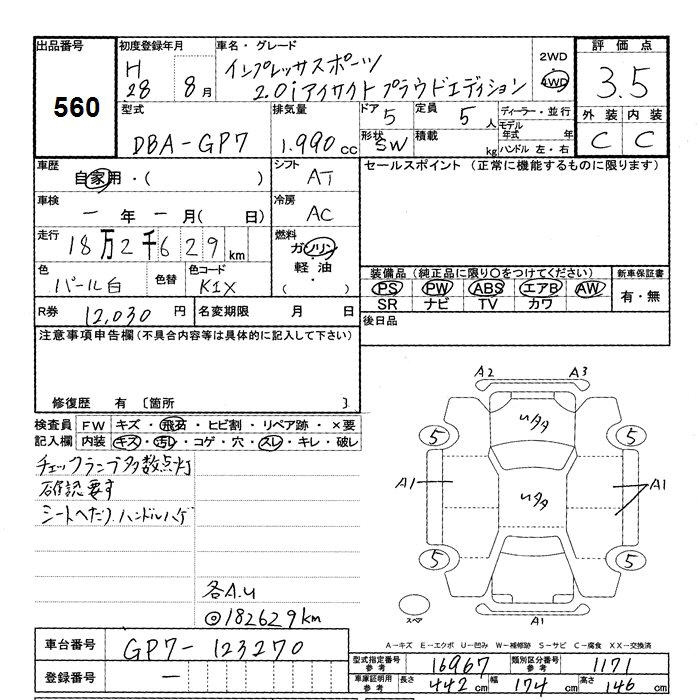 出品番号
560
初度登録年月
H
28 8月
車名・グレード
インプレッサスポーツ
2.0iアイサイトプラウドエディション
2WD
4WD
評価点
3.5
外装 内装
C C
型式
DBA-GP7
排気量
1.990cc
ドア 5
形状 SW
定員 5人
積載 kg
ディーラー・並行
モデル年式 年
ハンドル 左・右
車歴
自家用・( )
シフト
AT
セールスポイント(正常に機能するものに限ります)
車検
ー年ー月( 日)
冷房
AC
走行
18万2千629km
燃料
ガソリン
軽油
( ・ )
色
パール白
色替
色コード
K1X
装備品(純正品に限り○をつけてください)
PS PW ABS エアB AW
SR ナビ TV カワ
新車保証書
有・無
R券 12,030円
名変期限 月 日
後日品
注意事項申告欄(不具合内容等は具体的に記入して下さい)
修復歴 有 〔箇所 〕
検査員記入欄
FW キズ・飛石・ヒビ割・リペア跡・×要
内装 キズ・汚レ・コゲ・穴・スレ・キレ・破レ
チェックランプ多数点灯
確認要す
シートへたり.ハンドルハゲ
各A.U
◎182629km
A2 A3
5 5
A1 A1
5 5
スペア
A1
A-キズ E-エクボ U-凹み W-補修跡 S-サビ C-腐食 XX-交換済
車台番号 GP7-123270
登録番号 ー
型式指定番号参考 16967 類別区分番号参考 1171
車庫証明用参考 長さ 442cm 幅 174cm 高さ 146cm